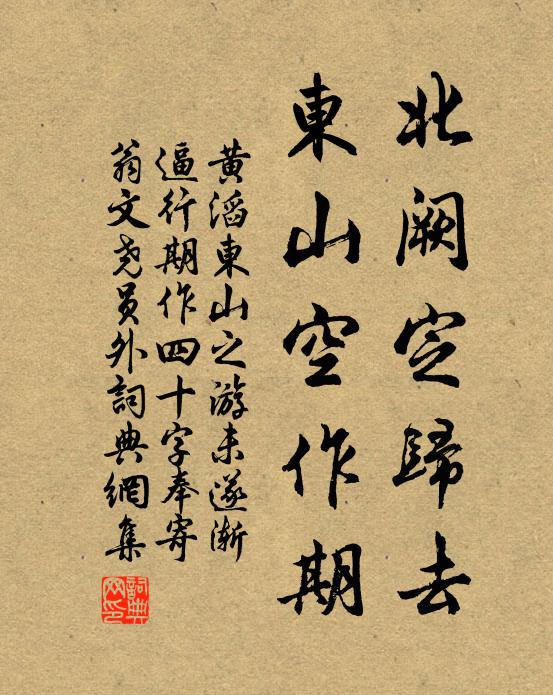 北闕定歸去
東山空作期
黃滔東山之游未遂漸
逼行期作四十字奉寄
翁文堯員外詞典網集
詞典網印